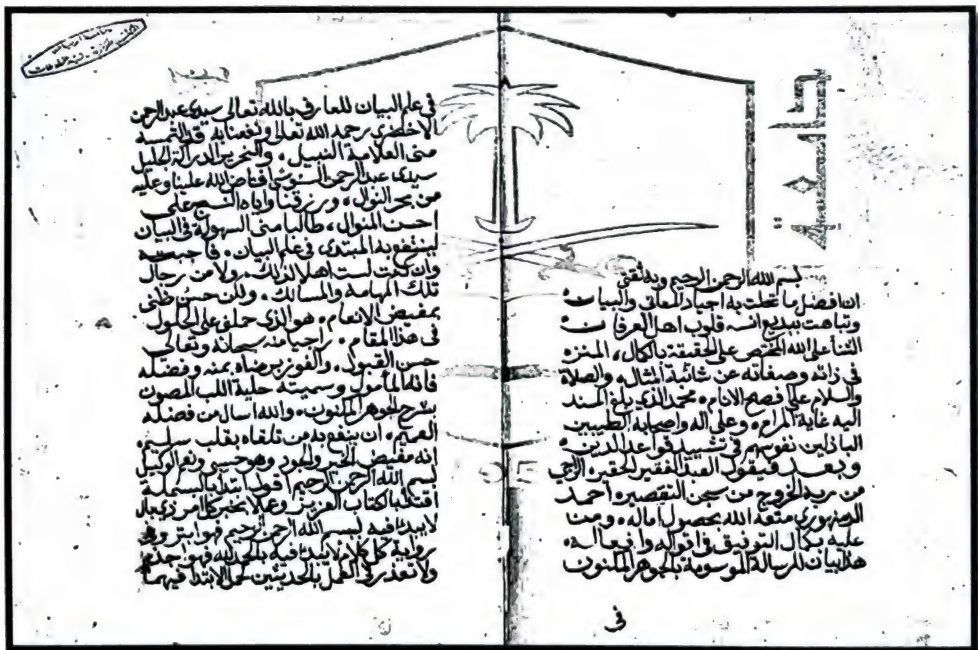 بسم الله الرحمن الرحيم وبه ثقتي
ان افضل ما تحلت به اجياد المعاني والبيان
وتباهت ببديع انسه قلوب اهل العرفان
الثنا على الله المختص على الحقيقة بالكمال، المنزه
في ذاته وصفاته عن شائبة المثال، والصلاة
والسلام على افصح الانام، محمد الذي بلغ المسند
اليه غاية المرام، وعلى اله واصحابه الطيبين
الباذلين نفوسهم في تشييد قواعد الدين
وبعد فيقول العبد الفقير الحقير الراجي
من ربه الخروج من سجن التقصير، احمد
الدمنهوري متعه الله بحصول اماله، ومن
عليه بكمال التوفيق في اقواله وافعاله،
هذا بيان للرسالة الموسومة بالجوهر المكنون
في
في علم البيان للعارف بالله تعالى سيدي عبد الرحمن
الاخضري رحمه الله تعالى ونفعنا به قد التمسه
مني العلامة النبيل، والنحرير الدراكة الجليل
سيدي عبد الرحمن السوسي افاض الله علينا وعليه
من بحر النوال، ورزقنا واياه النسج على
احسن المنوال، طالبا مني السهولة في البيان
لينتفع به المبتدي في علم البيان، فاجبته
وان كنت لست اهلا لذلك، ولا من رجال
تلك المهامه والمسالك، ولكن حسن ظني
بمفيض الانعام، هو الذي حملني على الحلول
في هذا المقام، راجيا منه سبحانه وتعالى
حسن القبول، والفوز برضاه بمنه وفضله
فانه المأمول وسميته حلية اللب المصون
بشرح الجوهر المكنون، والله اسال من فضله
العميم، ان ينفع به من تلقاه بقلب سليم،
انه مفيض الخير والجود وهو حسبي ونعم الوكيل
بسم الله الرحمن الرحيم اقول ابتدا بالبسملة
اقتدا بالكتاب العزيز وعملا بخبر كل امر ذي بال
لا يبدا فيه ببسم الله الرحمن الرحيم فهو ابتر وفي
رواية كل كلام لا يبدا فيه بالحمد لله فهو اجذم
ولا تعذر في العمل بالحديثين لحمل الابتدا فيهما
جامعة